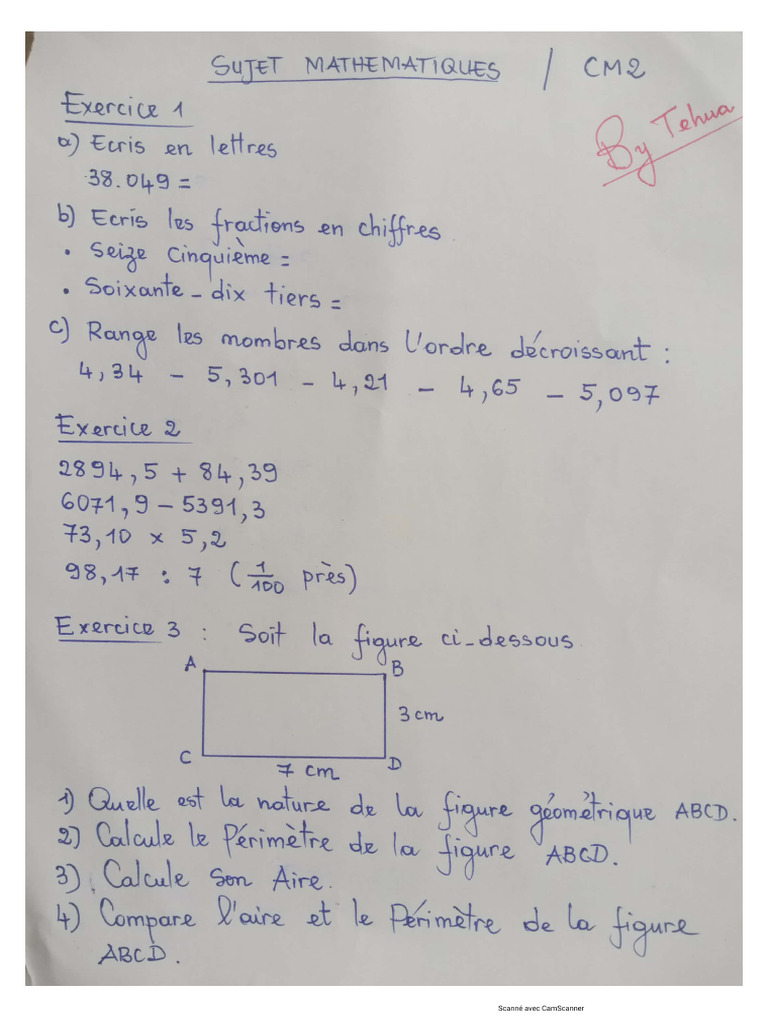 SUJET MATHEMATIQUES / CM2
By Tehua
Exercice 1
a) Ecris en lettres
38.049 =
b) Ecris les fractions en chiffres
• Seize cinquième =
• Soixante-dix tiers =
c) Range les nombres dans l'ordre décroissant :
4,34 - 5,301 - 4,21 - 4,65 - 5,097
Exercice 2
2894,5 + 84,39
6071,9 - 5391,3
73,10 x 5,2
98,17 : 7 (1/100 près)
Exercice 3 : Soit la figure ci-dessous
A B
3 cm
C D
7 cm
1) Quelle est la nature de la figure géométrique ABCD.
2) Calcule le Périmètre de la figure ABCD.
3) Calcule son Aire.
4) Compare l'aire et le Périmètre de la figure
ABCD.
Scanné avec CamScanner